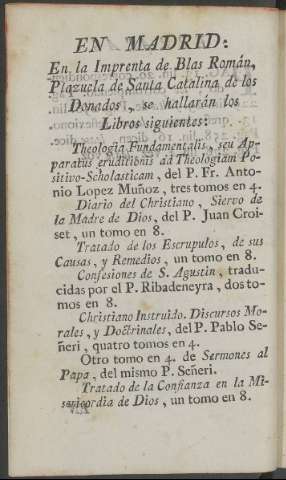 EN MADRID:
En la Imprenta de Blas Román,
Plazuela de Santa Catalina de los
Donados, se hallarán los
Libros siguientes:
Theologia Fundamentalis, seu Ap-
paratus eruditionis ad Theologiam Po-
sitivo-Scholasticam, del P. Fr. Anto-
nio Lopez Muñoz, tres tomos en 4.
Diario del Christiano, Siervo de
la Madre de Dios, del P. Juan Croi-
set, un tomo en 8.
Tratado de los Escrupulos, de sus
Causas, y Remedios, un tomo en 8.
Confesiones de S. Agustin, tradu-
cidas por el P. Ribadeneyra, dos to-
mos en 8.
Christiano Instruido. Discursos Mo-
rales, y Doctrinales, del P. Pablo Se-
ñeri, quatro tomos en 4.
Otro tomo en 4. de Sermones al
Papa, del mismo P. Señeri.
Tratado de la Confianza en la Mi-
sericordia de Dios, un tomo en 8.